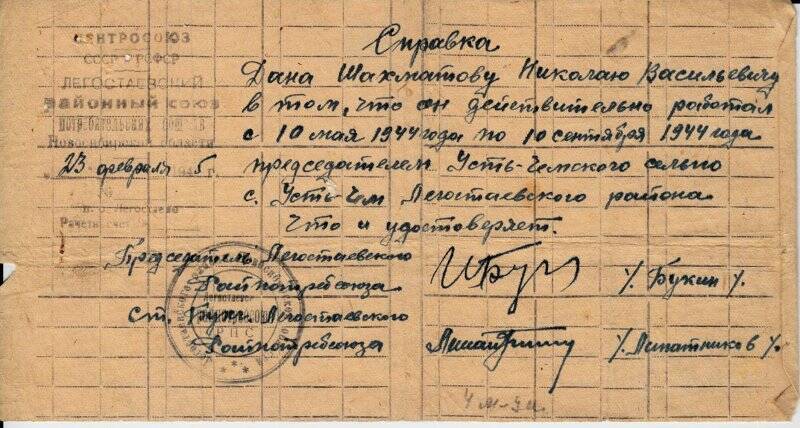 ЦЕНТРОСОЮЗ
СССР РСФСР
ЛЕГОСТАЕВСКИЙ
РАЙОННЫЙ СОЮЗ
Новосибирской области
23 февраля 5 г.
Справка
Дана Шахматову Николаю Васильевичу
в том, что он действительно работал
с 10 мая 1944 года по 10 сентября 1944 года
председателем Усть-Чемского сельпо
с. Усть-Чем Легостаевского района
что и удостоверяет.
Председатель Легостаевского
Райпотребсоюза
/. Букин /.
Ст. Бухг. Легостаевского
Райпотребсоюза
/. Липатников /.
РПС